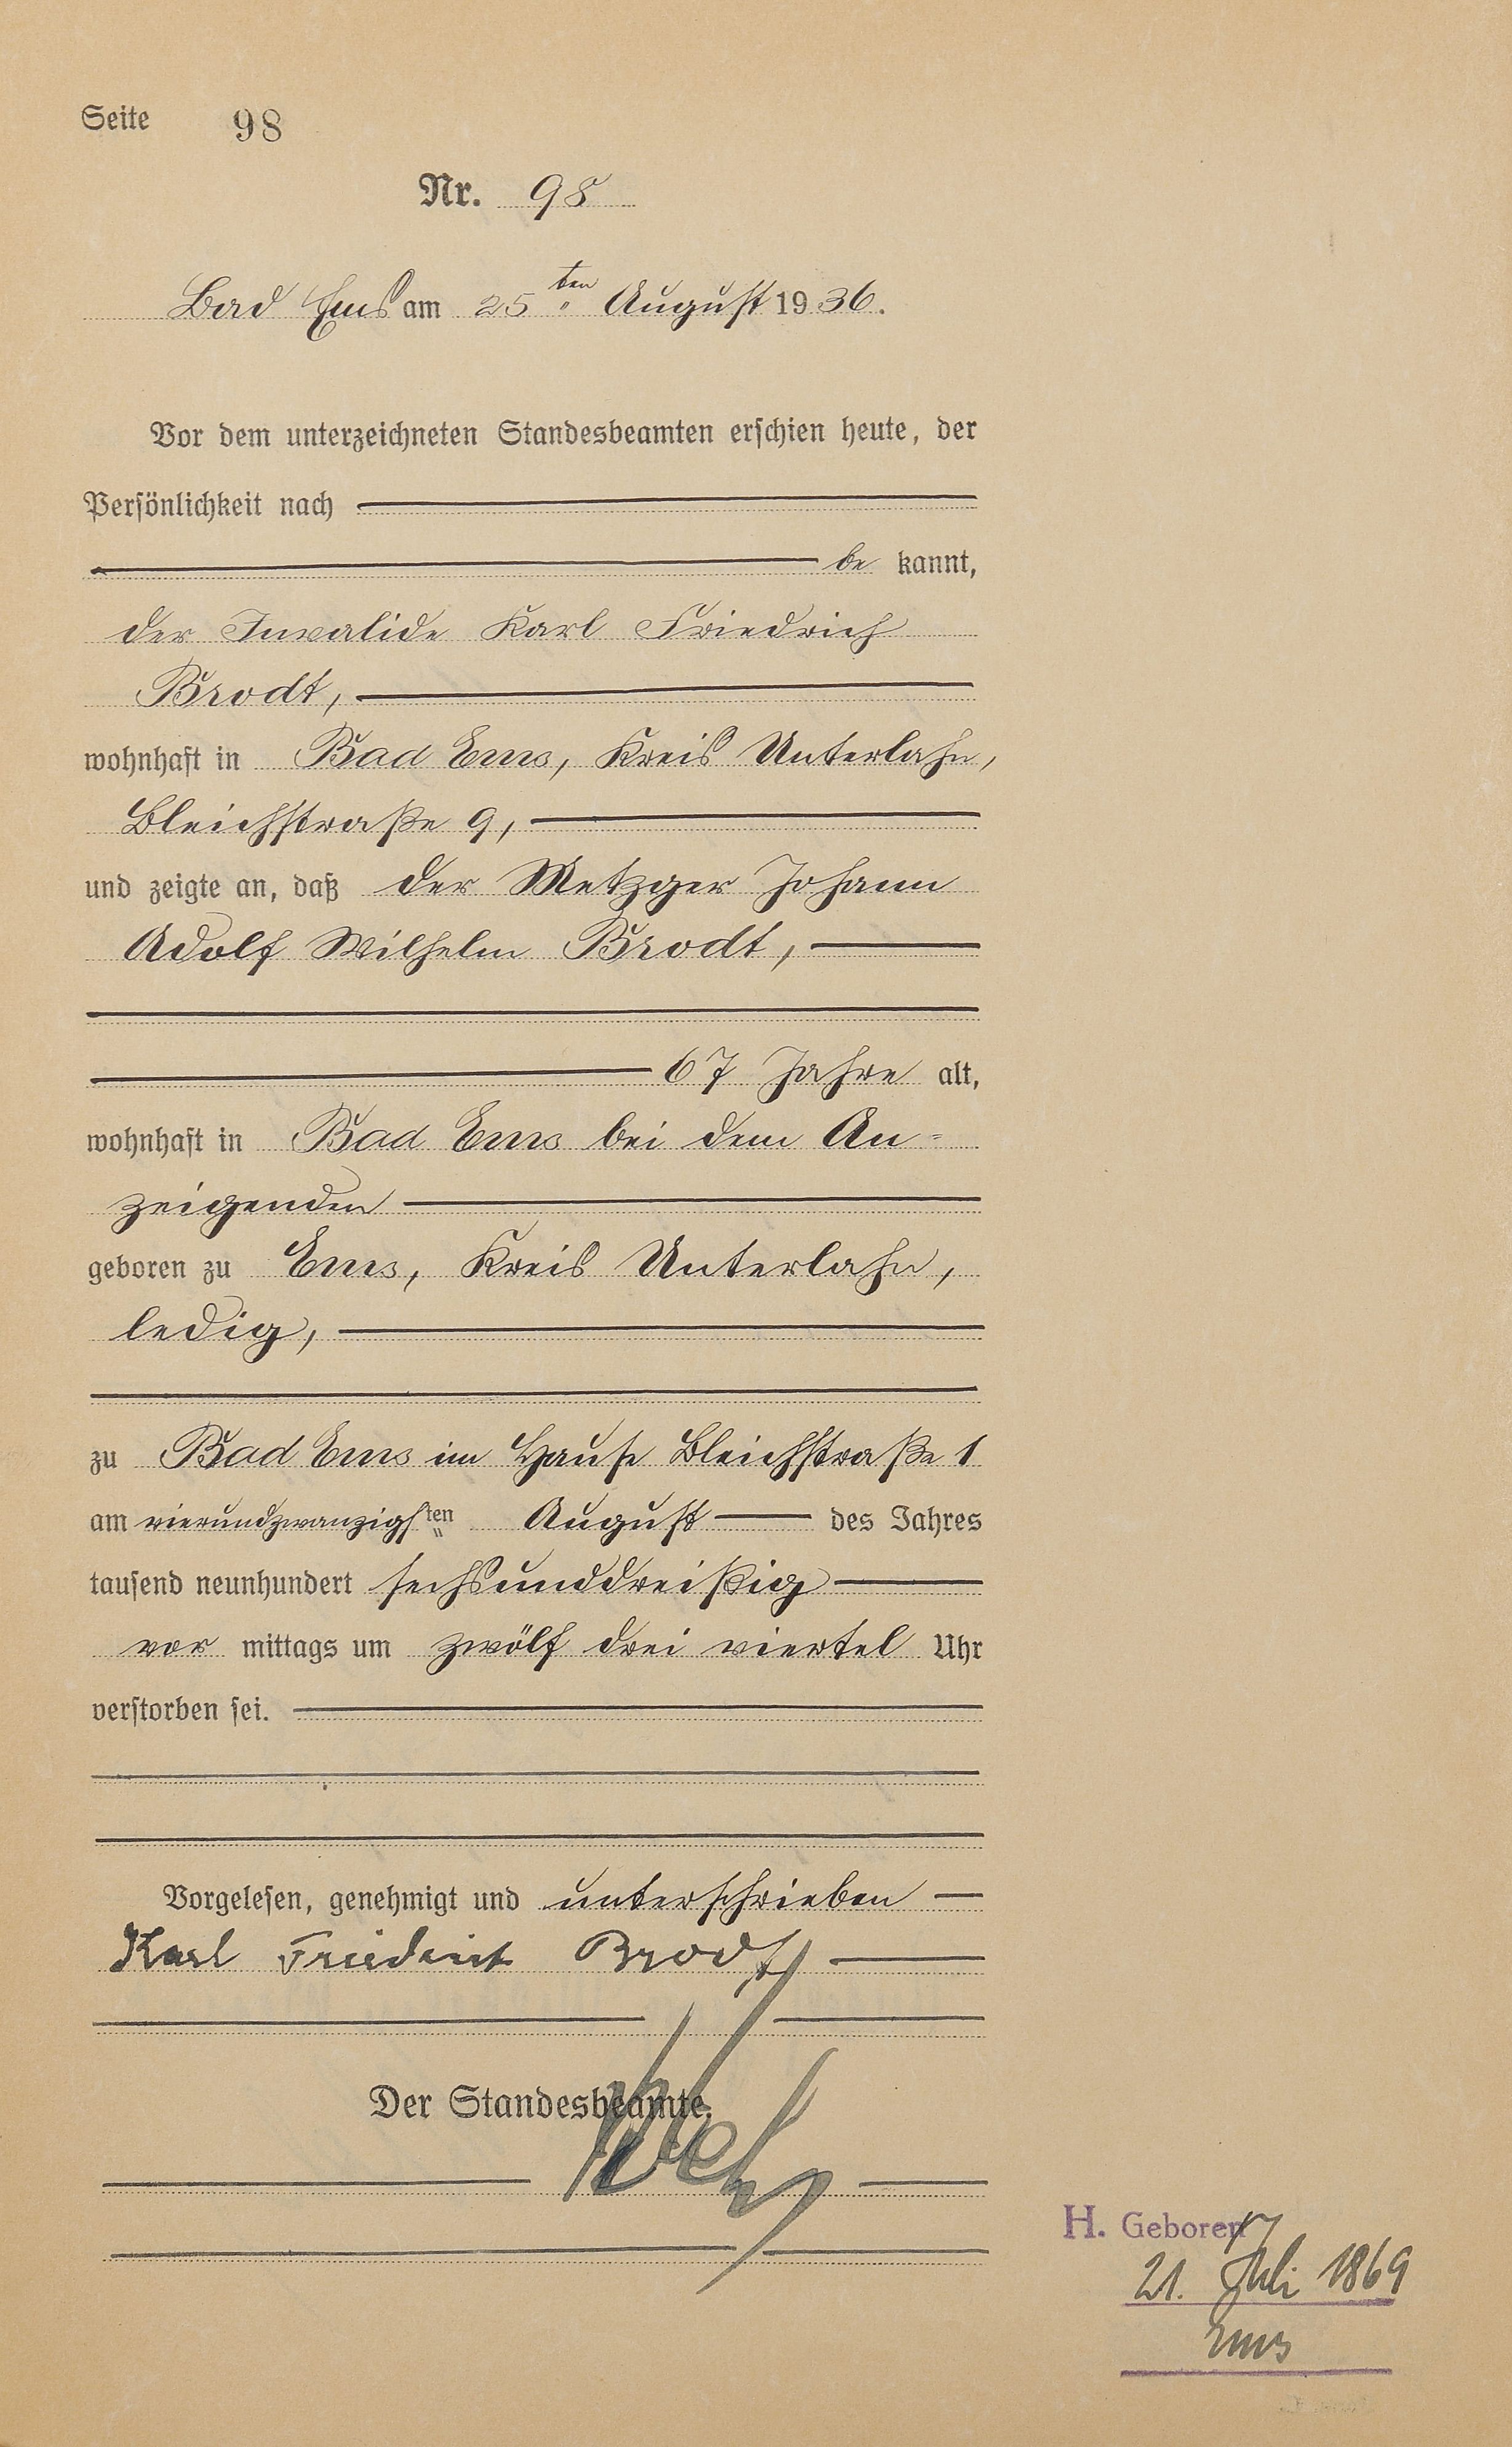 Seite 98
Nr. 98
Bad Ems am 25ten August 1936.
Vor dem unterzeichneten Standesbeamten erschien heute, der
Persönlichkeit nach
be kannt,
der Invalide Karl Friedrich
Brodt,
wohnhaft in Bad Ems, Kreis Unterlahn,
Bleichstraße 9,
und zeigte an, daß der Metzger Johann
Adolf Wilhelm Brodt,
67 Jahre alt,
wohnhaft in Bad Ems bei dem An=
zeigenden
geboren zu Ems, Kreis Unterlahn,
ledig,
zu Bad Ems im Hause Bleichstraße 1
am vierundzwanzigsten August des Jahres
tausend neunhundert sechsunddreißig
vor mittags um zwölf drei viertel Uhr
verstorben sei.
Vorgelesen, genehmigt und unterschrieben
Karl Friedrich Brodt
Der Standesbeamte.
H. Geboren
21. Juli 1869
Ems